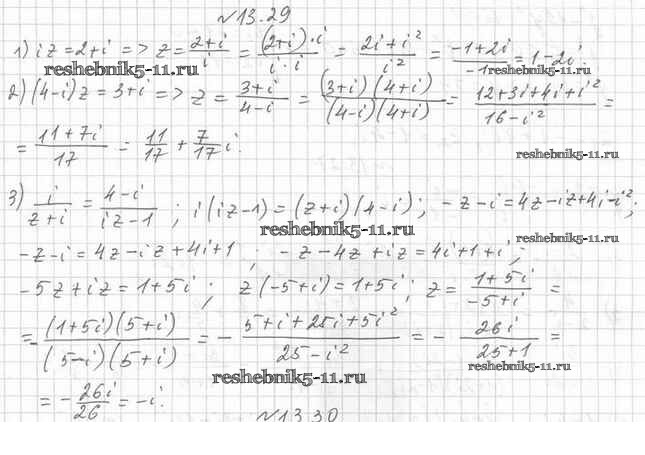 №13.29
1) iz = 2+i => z = (2+i)/i = ((2+i)·i)/(i·i) = (2i+i²)/i² = (-1+2i)/-1 = 1-2i.
reshebnik5-11.ru reshebnik5-11.ru
2) (4-i)z = 3+i => z = (3+i)/(4-i) = ((3+i)(4+i))/((4-i)(4+i)) = (12+3i+4i+i²)/(16-i²) =
= (11+7i)/17 = 11/17 + 7/17 i.
reshebnik5-11.ru
3) i/(z+i) = (4-i)/(iz-1) ; i(iz-1) = (z+i)(4-i); -z-i = 4z-iz+4i-i²;
reshebnik5-11.ru reshebnik5-11.ru
-z-i = 4z-iz+4i+1 ; -z-4z+iz = 4i+1+i ;
-5z+iz = 1+5i ; z(-5+i) = 1+5i ; z = (1+5i)/(-5+i) =
= -((1+5i)(5+i))/((5-i)(5+i)) = -(5+i+25i+5i²)/(25-i²) = -26i/(25+1) =
reshebnik5-11.ru reshebnik5-11.ru
= -26i/26 = -i.
№13.30